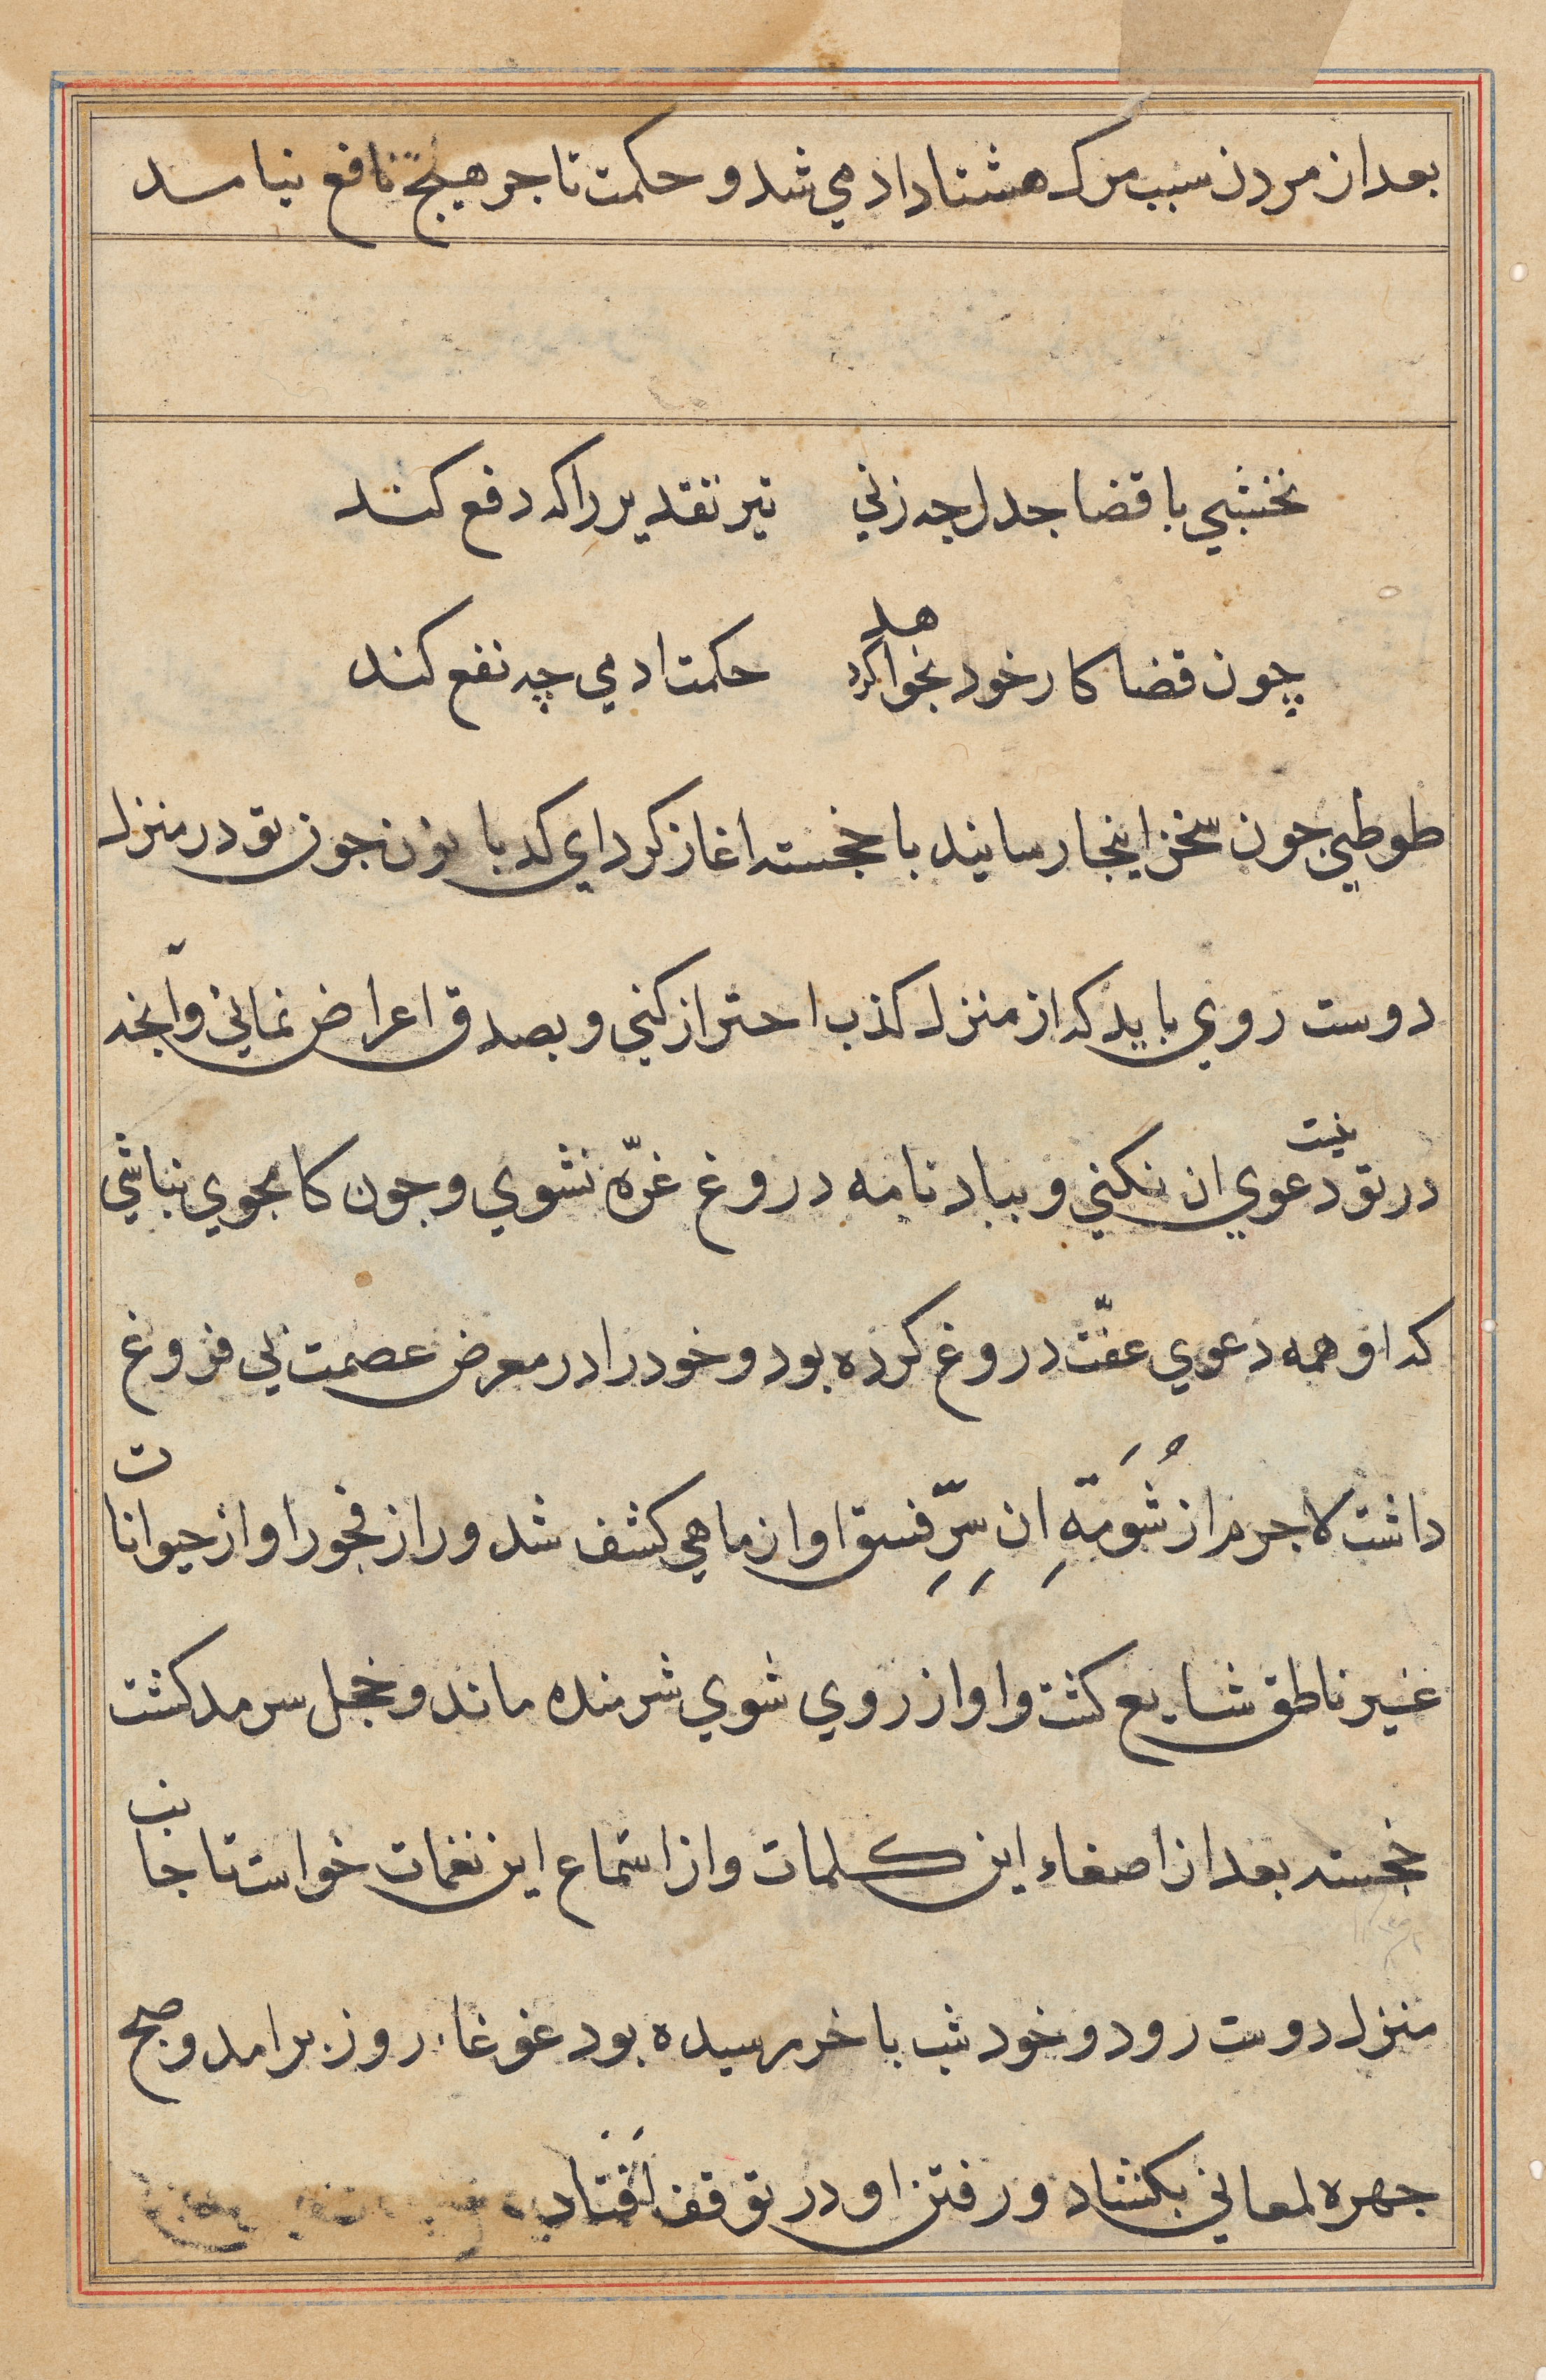 بعد از مردن سبب مرک هشتاد ادمي شد و حکمت تاجر هیچ نافع نیامسد
نخشبي با قضا جدل جه زني تیر تقدیر را که دفع کند
چون قضا کار خود بخواهد کرد حکمت ادمي چه نفع کند
طوطي جون سخن اینجا رسانید با خجسته اغاز کرد اي کدبانون جون تو در منزل
دوست روي باید که از منزل کذب احتراز کني و بصدق اعراض نماني و آنجه
در تو نیست دعوي ان نکني و بباد نامه دروغ غرّه نشوي و جون کامجوي نباشي
که او همه دعوي عفّت دروغ کرده بود و خود را در معرض عصمت بي فروغ
داشت لاجرم از شُومَةِ ان سِرِّ فسق او از ماهي کشف شد و راز فجور او از حیوانات
غیر ناطق شایع کشت و او از روي شوي شرمنده ماند و خجل سرمد کشت
خجسته بعد از اصغاء این کلمات و از استماع این نغمات خواست تا جانب
منزل دوست رود و خود شب باخر رسیده بود غوغاء روز برامد و صبح
جهره لمعاني بکشاد و رفتن او در توقف افتاد